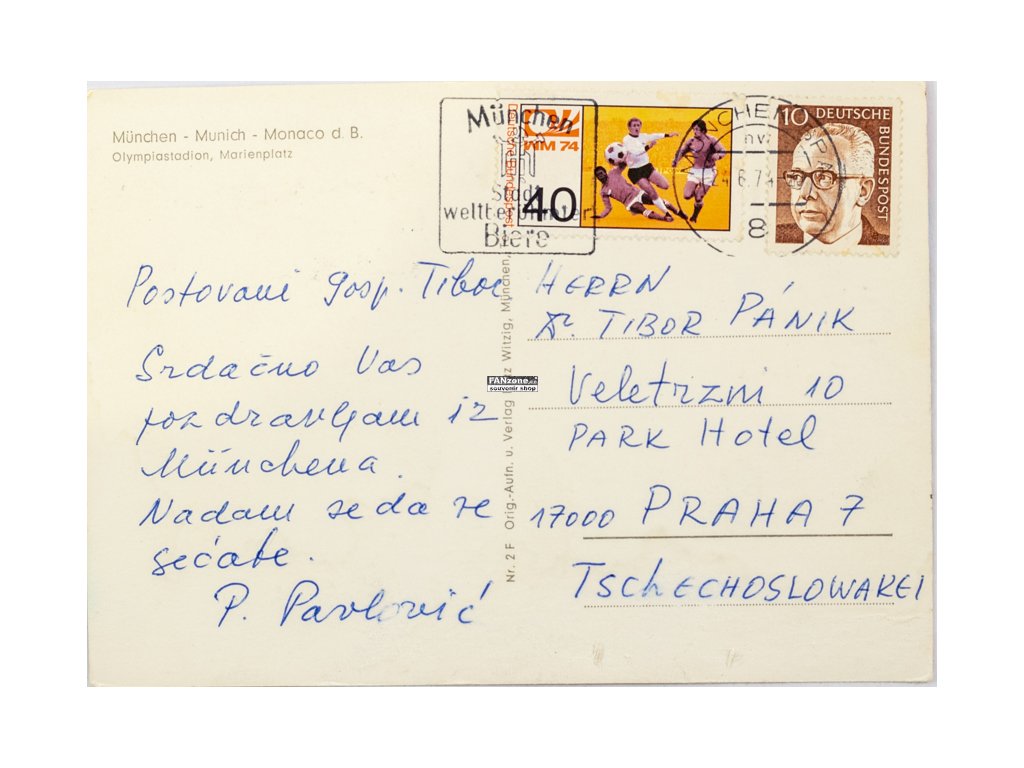 München - Munich - Monaco d. B.
Olympiastadion, Marienplatz
München
Stadt
weltberühmter
Biere
Deutsche Bundespost
WM 74
40
MÜNCHEN
24.6.74
8
10 DEUTSCHE
BUNDESPOST
Postovani gosp. Tibor
Srdačno Vas
pozdravljam iz
Münchena.
Nadam se da se
sećate.
P. Pavlović
Nr. 2 F Orig.-Aufn. u. Verlag Witzig, München,
FANzone.cz
souvenir shop
HERRN
Dr. TIBOR PÁNIK
Veletrizni 10
PARK Hotel
17000 PRAHA 7
TSCHECHOSLOWAKEI